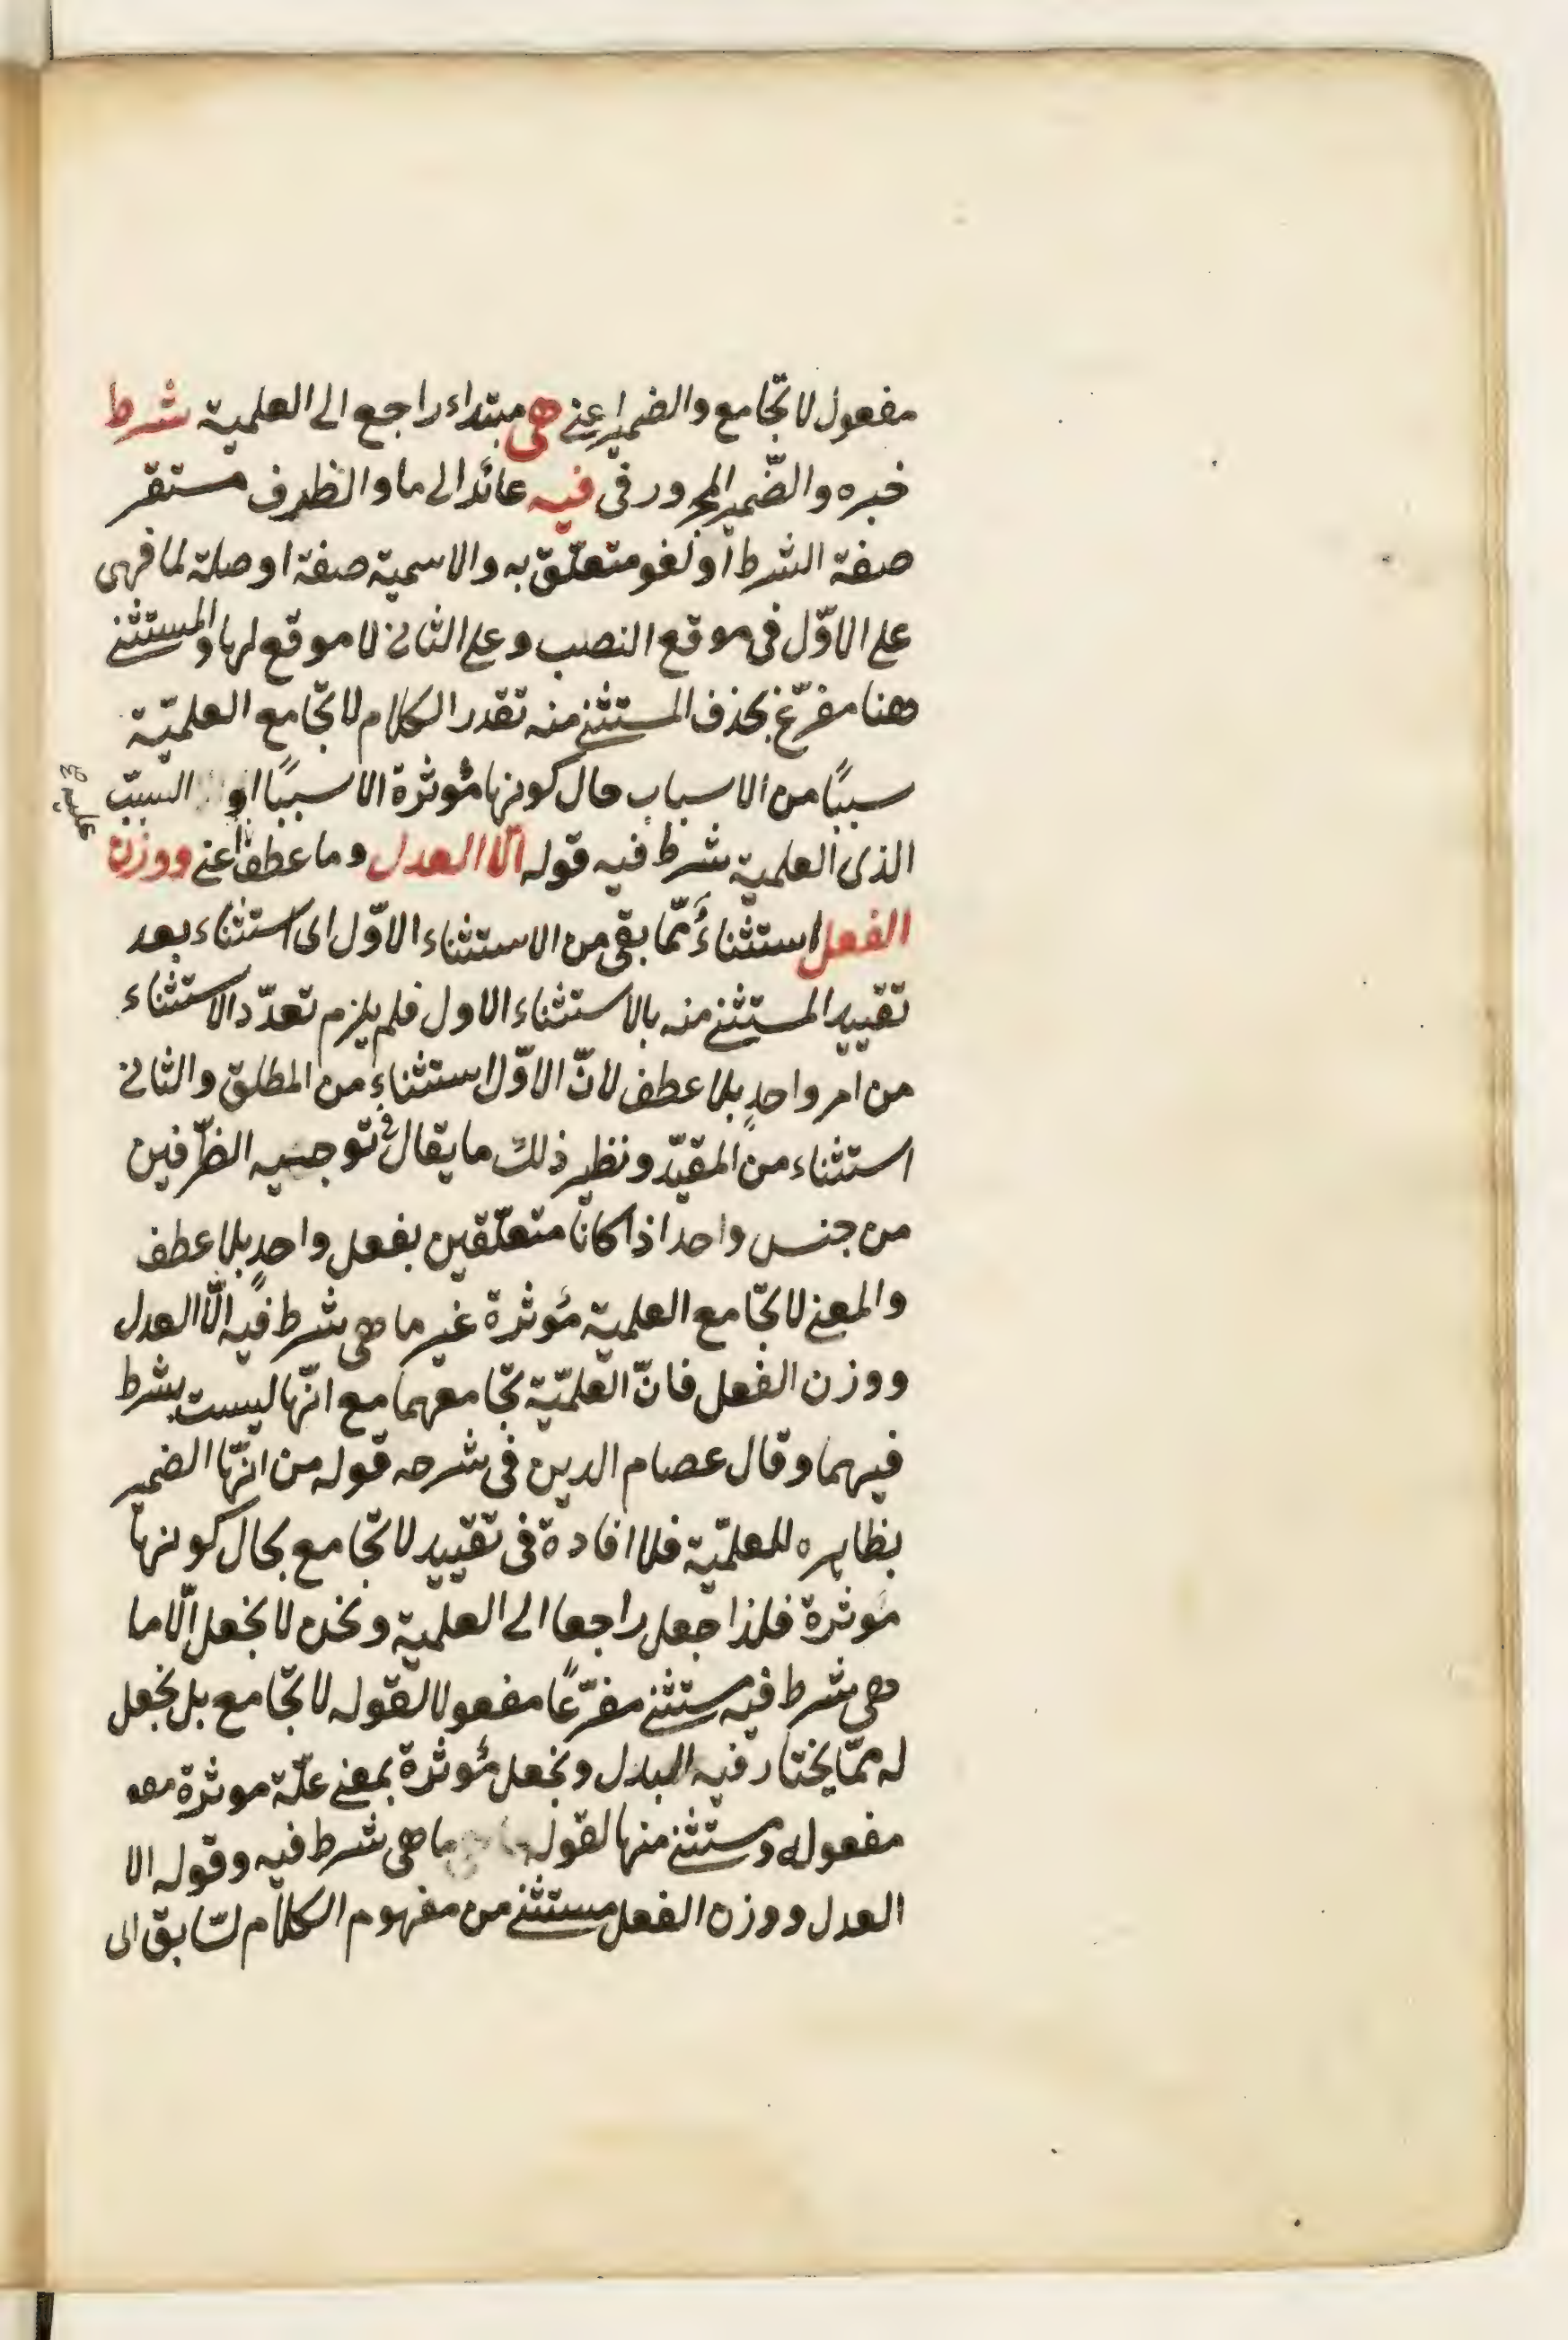 مفعول لا تجامع والضمير اعنى هى مبتداء راجع الى العلمية شرط
خبره والضّمير المجرور فى فيه عائد الى ما والظرف مستقر
صفة الشرط او لغو متعلّق به والاسمية صفة او صلة لما فهى
على الاوّل فى موقع النصب وعلى الثانى لا موقع لها والمستثنى
ههنا مفرّغ بحذف المستثنى منه تقدر الكلام لا تجّامع العلميّة
سببًا من الاسباب حال كونها مؤثرة الا سببًا او السبب
الذى العلمية شرط فيه قوله الّا العدل وما عطف اعنى ووزن
عليه صح
الفعل استثناءُ ممّا بقى من الاستثناء الاوّل اى استثناء بعد
تقييد المستثنى منه بالاستثناء الاول فلم يلزم تعدّد الاستثناء
من امر واحدٍ بلا عطف لانّ الاوّل استثناء من المطلق والثانى
استثناء من المقيّد ونظير ذلك ما يقال فى توجيه الظرّفين
من جنس واحد اذا كانا متعلّقين بفعل واحدٍ بلا عطف
والمعنى لا تجّامع العلمية مؤثرة غير ما هى شرط فيه الّا العدل
ووزن الفعل فانّ العلميّة تجّامعهما مع انّها ليست بشرط
فيهما وقال عصام الدين فى شرحه قوله من انّها الضمير
بظاهره للعلميّة فلا افادة فى تقييد لا تجّامع بحال كونها
مؤثرة فلذا جعل راجعا الى العلمية ونحن لا نجعل الّا ما
هى شرط فيه مستثنى مفرّغًا مفعولا لقوله لا تجّامع بل نجعل
له ممّا يختار فيه البدل ونجعل مؤثرة بمعنى علّة موثرة معه
مفعوله ومستثنى منها لقوله ما هى شرط فيه وقوله الا
العدل ووزن الفعل مستثنى من مفهوم الكلام لسّابق اى